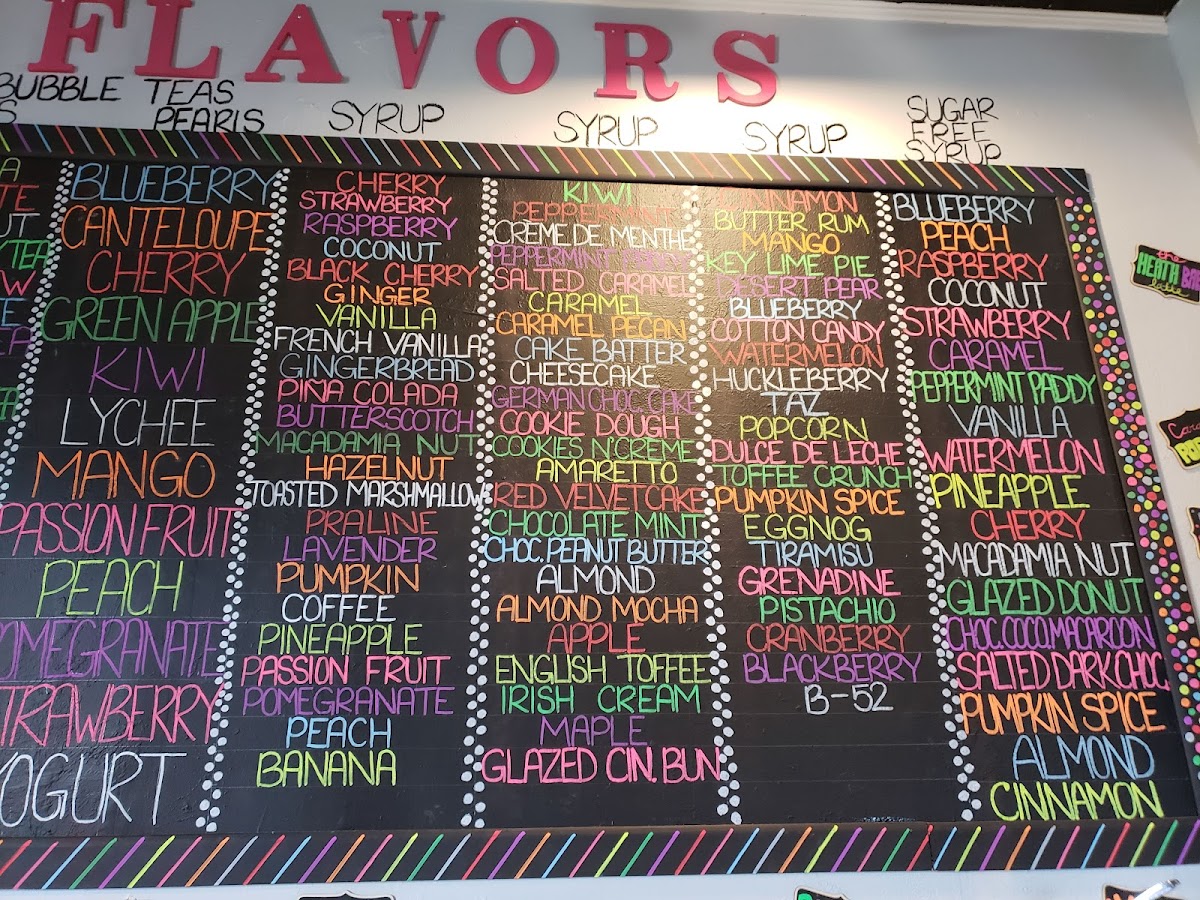 FLAVORS
BUBBLE TEAS
PEARLS
SYRUP
SYRUP
SYRUP
SUGAR
FREE
SYRUP
BLUEBERRY
CANTELOUPE
CHERRY
GREEN APPLE
KIWI
LYCHEE
MANGO
PASSION FRUIT
PEACH
POMEGRANATE
STRAWBERRY
YOGURT
CHERRY
STRAWBERRY
RASPBERRY
COCONUT
BLACK CHERRY
GINGER
VANILLA
FRENCH VANILLA
GINGERBREAD
PIÑA COLADA
BUTTERSCOTCH
MACADAMIA NUT
HAZELNUT
TOASTED MARSHMALLOW
PRALINE
LAVENDER
PUMPKIN
COFFEE
PINEAPPLE
PASSION FRUIT
POMEGRANATE
PEACH
BANANA
KIWI
PEPPERMINT
CRÈME DE MENTHE
PEPPERMINT
SALTED CARAMEL
CARAMEL
CARAMEL PECAN
CAKE BATTER
CHEESECAKE
GERMAN CHOC. CAKE
COOKIE DOUGH
COOKIES N' CREME
AMARETTO
RED VELVET CAKE
CHOCOLATE MINT
CHOC. PEANUT BUTTER
ALMOND
ALMOND MOCHA
APPLE
ENGLISH TOFFEE
IRISH CREAM
MAPLE
GLAZED CIN. BUN
CINNAMON
BUTTER RUM
MANGO
KEY LIME PIE
DESERT PEAR
BLUEBERRY
COTTON CANDY
WATERMELON
HUCKLEBERRY
TAZ
POPCORN
DULCE DE LECHE
TOFFEE CRUNCH
PUMPKIN SPICE
EGGNOG
TIRAMISU
GRENADINE
PISTACHIO
CRANBERRY
BLACKBERRY
B-52
BLUEBERRY
PEACH
RASPBERRY
COCONUT
STRAWBERRY
CARAMEL
PEPPERMINT PADDY
VANILLA
WATERMELON
PINEAPPLE
CHERRY
MACADAMIA NUT
GLAZED DONUT
CHOC. COCO. MACAROON
SALTED DARK CHOC.
PUMPKIN SPICE
ALMOND
CINNAMON
HEATH BAR